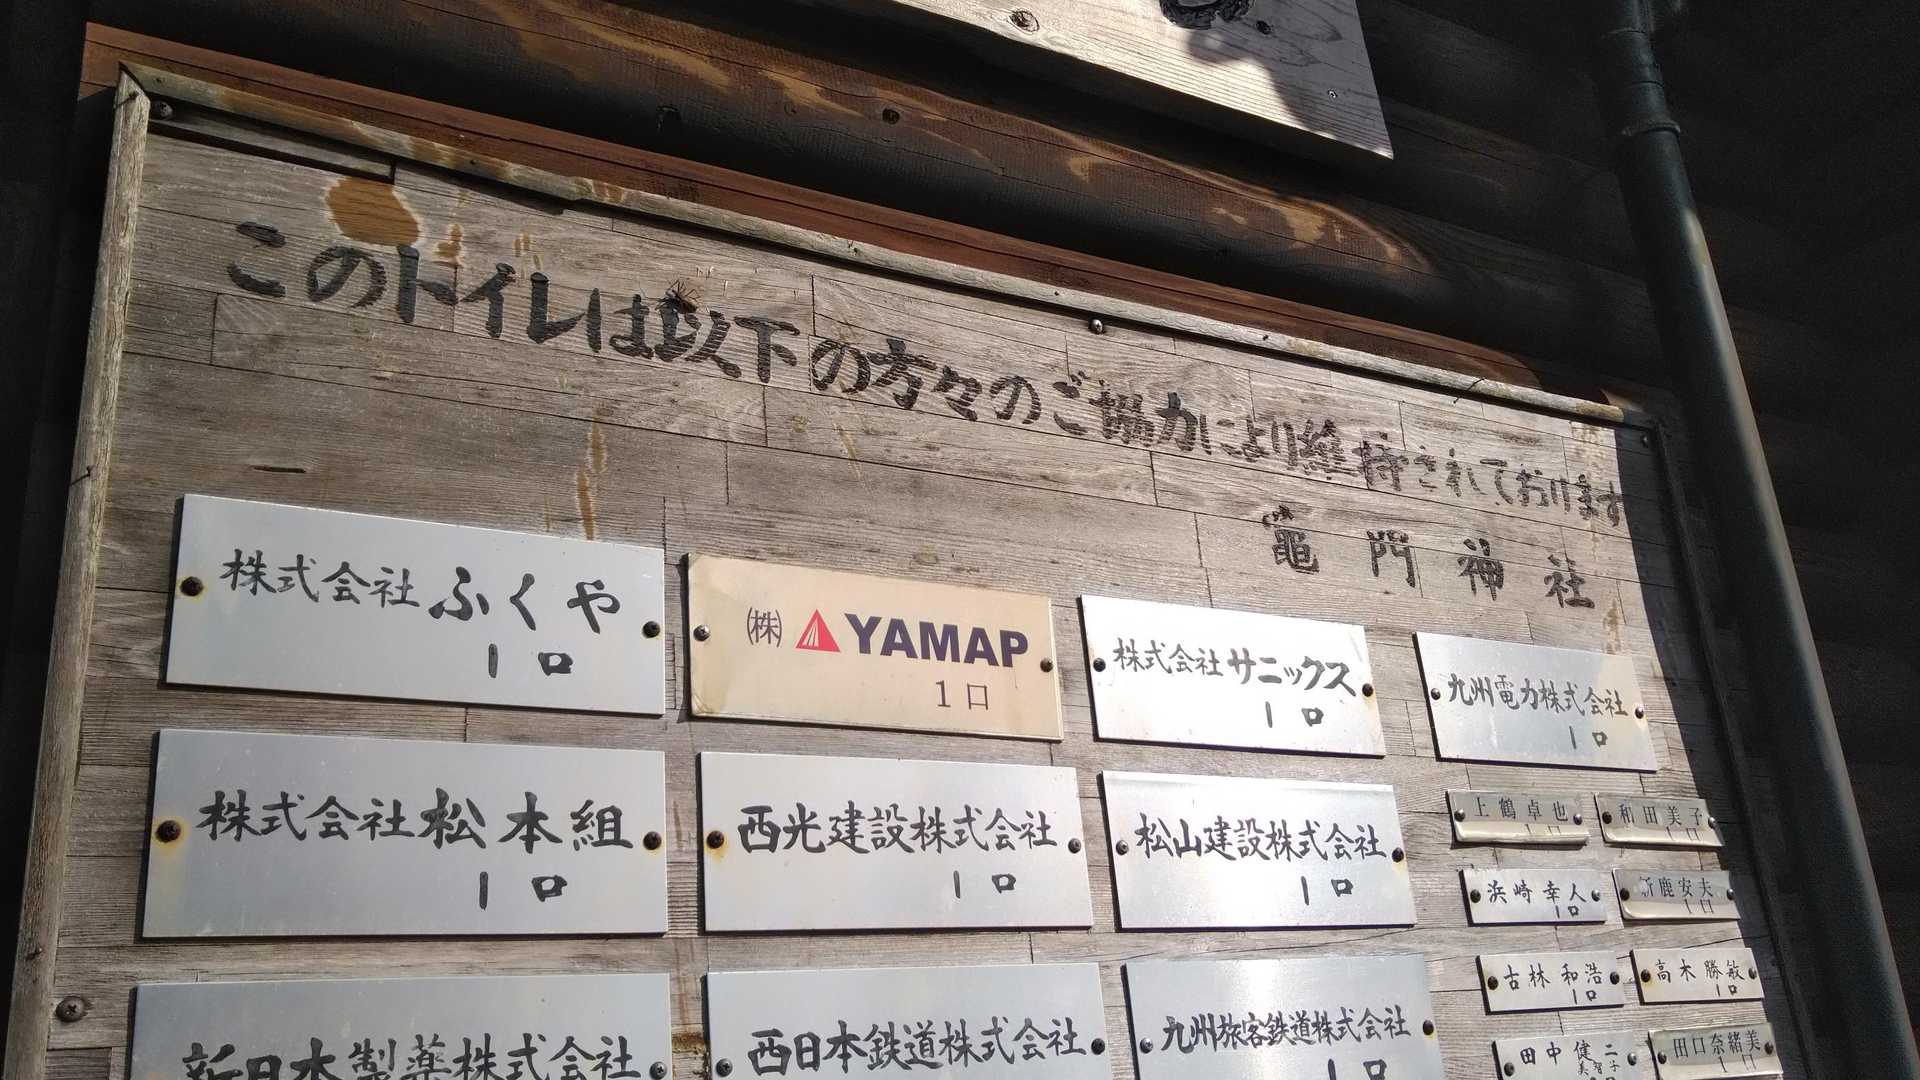 このトイレは以下の方々のご協力により維持されております
竈門神社
株式会社ふくや
1口
㈱ YAMAP
1口
株式会社サニックス
1口
九州電力株式会社
1口
株式会社松本組
1口
西光建設株式会社
1口
松山建設株式会社
1口
上鶴卓也
1口
和田美子
1口
浜崎幸人
1口
新鹿安夫
1口
古林和浩
1口
高木勝敏
1口
新日本製薬株式会社
西日本鉄道株式会社
九州旅客鉄道株式会社
1口
田中健二
美智子
田口奈緒美
1口